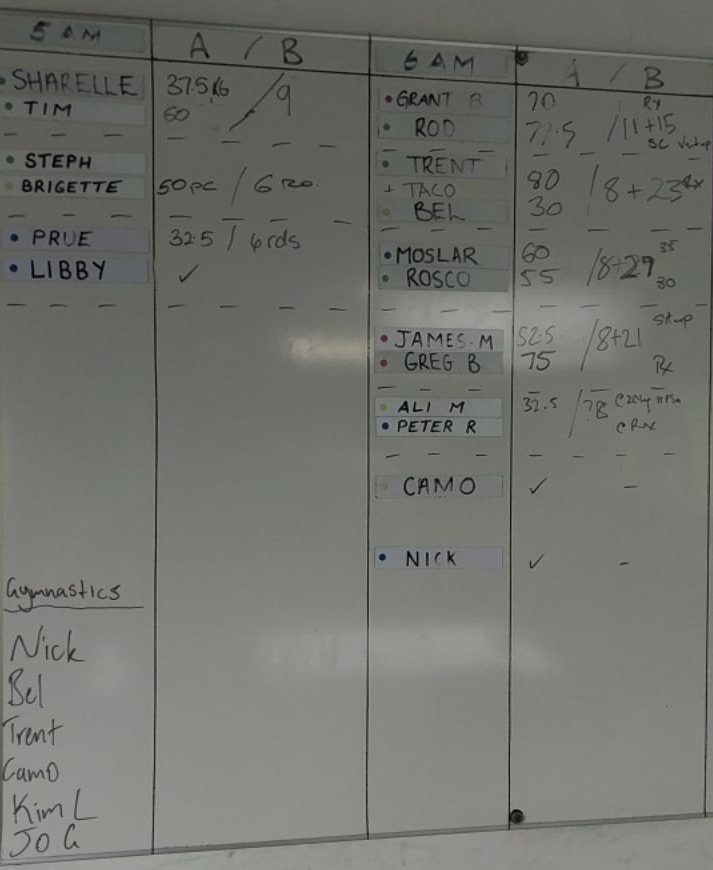 5 AM
A / B
SHARELLE 37.5KG / 9
TIM 60
STEPH
BRIGETTE 50 / 6
PRUE 32.5 / 6 rds
LIBBY ✓
Gymnastics
Nick
Bel
Trent
Camo
Kim L
Jo G
6 AM
A / B
GRANT B 70 Rx
ROD / 11+15
SC
TRENT 80 / 8+23 Rx
TACO
BEL 30
MOSLAR 60 / 8+29 35
ROSCO 55 30
JAMES.M 52.5 / 8+21
GREG B 75 Rx
ALI M 32.5 /
PETER R Rx
CAMO ✓ –
NICK ✓ –